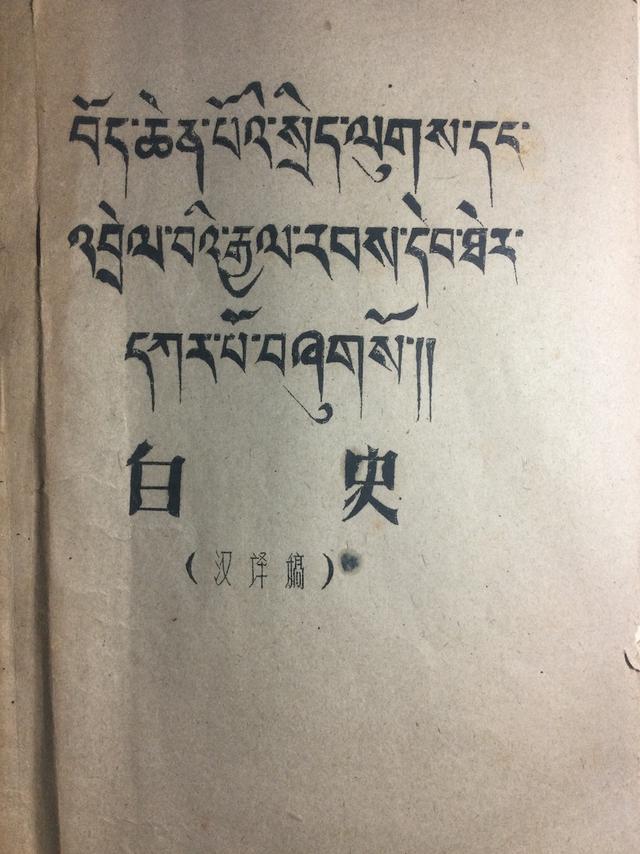 བོད་ཆེན་པོའི་སྲིད་ལུགས་དང་
འབྲེལ་བའི་རྒྱལ་རབས་དེབ་ཐེར་
དཀར་པོ་བཞུགསོ་༎
白 史
(汉译稿)